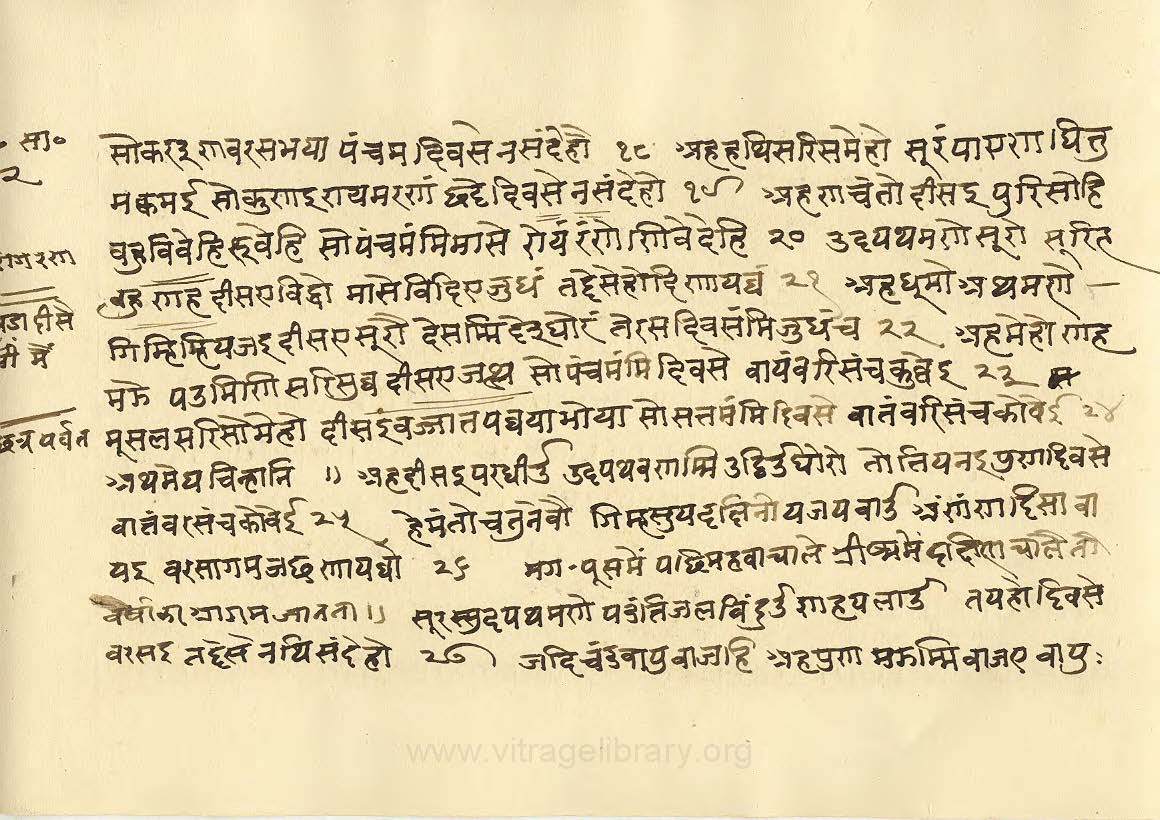 सा०
२
सोकरइ गावरसभया पंचम दिवसे न संदेहो १८ अह हथिसरिसमेहो सूरं पाएण पित्तु
मक्कमई सो कुणइ रायमरणं छट्ठे दिवसे न संदेहो १९ अह णचंतो दीसइ पुरिसोहि
बहुविवेहि रूवेहि सो पंचमंमि मासे रोयं रंगो णिवेदेहि २० उदयथमणे सूरो सूरित
बहु णह दीसए विद्दो मासे विदिए जुधं तद्देसे होदि णायव्वं २१ अह धूमो अथमणे
गिम्हिम्हियजइ दीसए सूरो देसम्मि देइ घोरं तेरस दिवसंमि जुधं च २२ अह मेहो णह
मझे पउमिणि सरिसुव्व दीसए जत्थ सो पंचमंमि दिवसे वायं वरिसं च कुव्वेइ २३
मूसलसरिसो मेहो दीसई वज्जा तपव्वया भोया सो सत्तमंमि दिवसे वातं वरिसं च कोवेई २४
अथ मेघ चिन्हानि ॥ अह दीसइ परधीउ उदयथवणम्मि उट्ठिउ घोरो तो तियनइ पुण दिवसे
वातं वरसं च कोवेई २५ हेमंतो चतुतेवो गिम्हसुय दक्षिनो य जय वाउ अंसंणं दिसा वा
यइ वरसागम जछ णायव्वो २६ मग-पूसमें पछिम हवा चाले ग्रीष्ममें दक्षिण चाले तो
वर्षाका आगम जानना॥ सूरस्सुदयथमणे पडंति जल विंदुउ णहयलाउ तयहो दिवसे
वरसइ तद्देसे नथि संदेहो २७ जदि चंडवायु वाजहि अह पुण मझम्मि वाजए वायु:
पडा दीसे
छत्र पर्वत
www.vitragelibrary.org